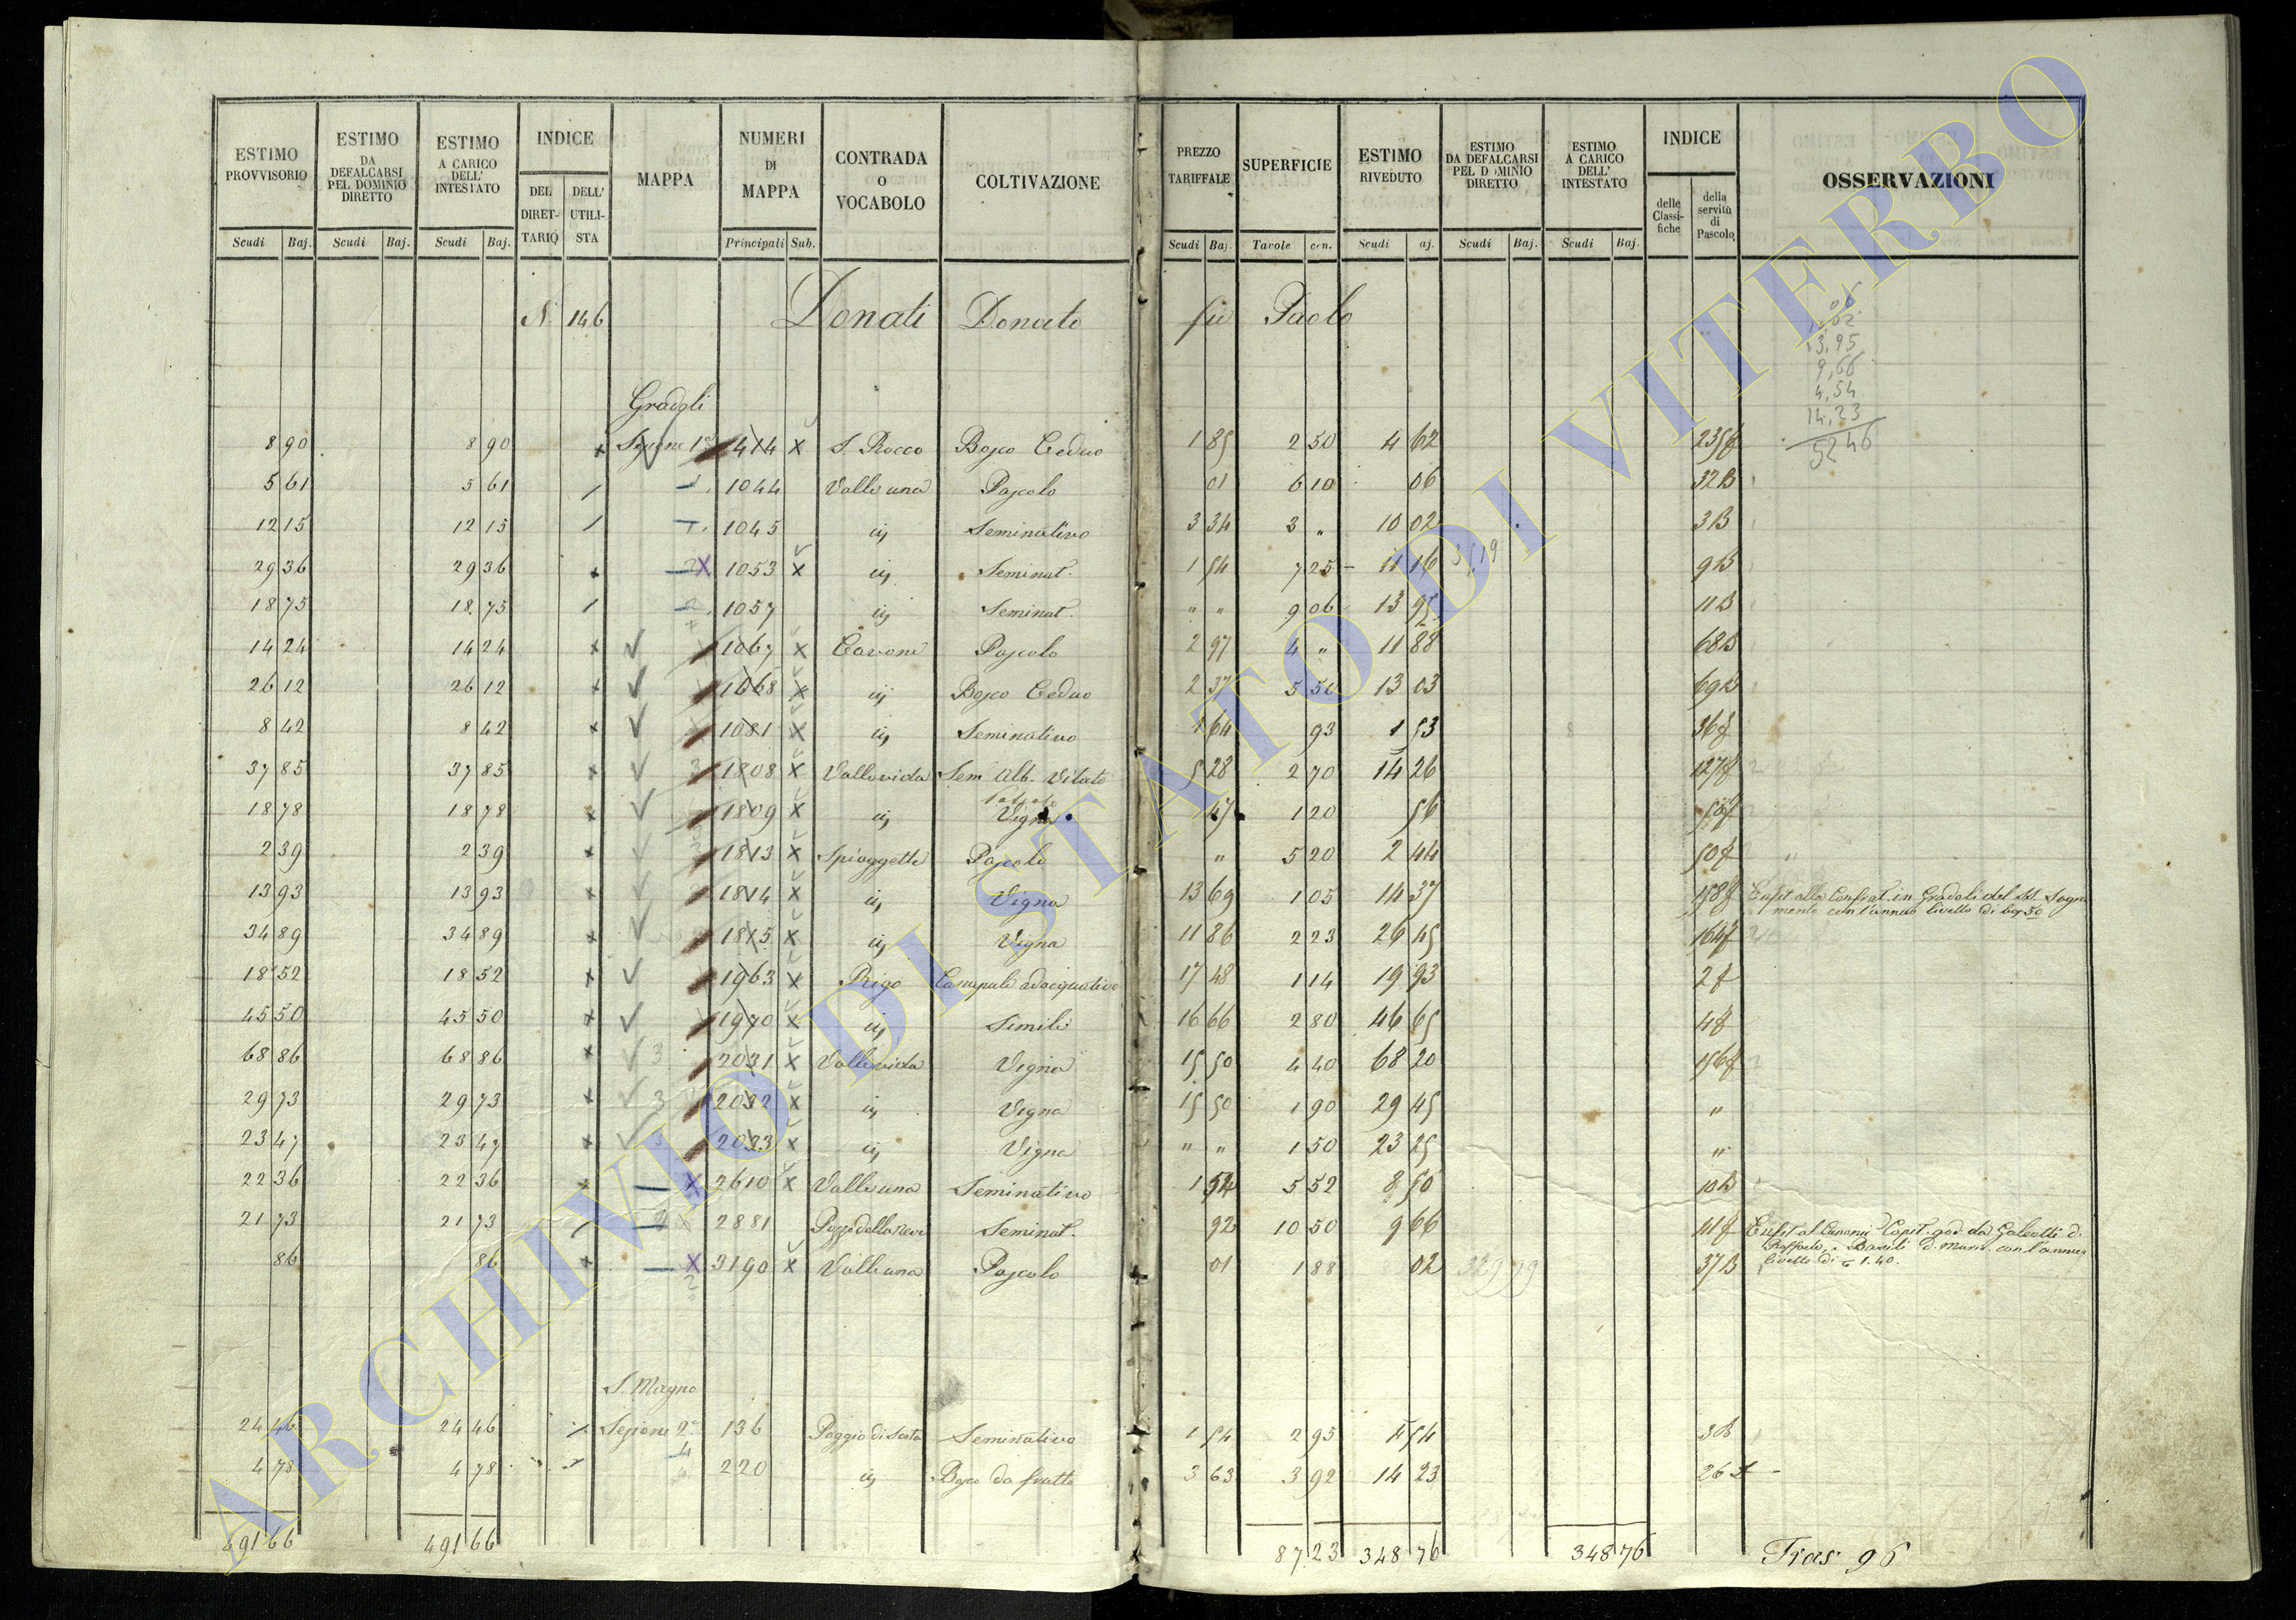 ESTIMO PROVVISORIO | ESTIMO DA DEFALCARSI PEL DOMINIO DIRETTO | ESTIMO A CARICO DELL' INTESTATO | INDICE | MAPPA | NUMERI DI MAPPA | CONTRADA O VOCABOLO | COLTIVAZIONE | PREZZO TARIFFALE | SUPERFICIE | ESTIMO RIVEDUTO | ESTIMO DA DEFALCARSI PEL DOMINIO DIRETTO | ESTIMO A CARICO DELL' INTESTATO | INDICE | OSSERVAZIONI
DEL DIRETTARIO | DELL' UTILISTA | delle Classifiche | della servitù di Pascolo
Scudi | Baj. | Scudi | Baj. | Scudi | Baj. | Principali | Sub. | Scudi | Baj | Tavole | cen. | Scudi | aj. | Scudi | Baj. | Scudi | Baj.
N. 146 Donati Donato fu Paolo
06
13,95
9,66
4,54
14,23
52 46
Gradoli
8 90 | 8 90 | x | Sezione 1a | 414 | x | S. Rocco | Bosco Ceduo | 1 85 | 2 50 | 4 62 | 235f
5 61 | 5 61 | / | 1044 | Valle una | Pascolo | 01 | 6 10 | 06 | 32B
12 15 | 12 15 | / | 1045 | iij | Seminativo | 3 34 | 3 " | 10 02 | 3B
29 36 | 29 36 | x | 2 X | 1053 | x | iij | Seminat. | 1 54 | 7 25 | 11 16 | 9B
18 75 | 18 75 | / | 2 | 1057 | iij | Seminat. | " " | 9 06 | 13 95 | 11B
14 24 | 14 24 | x | 1067 | x | Cavone | Pascolo | 2 97 | 4 " | 11 88 | 68B
26 12 | 26 12 | x | 1068 | x | iij | Bosco Ceduo | 2 37 | 5 50 | 13 03 | 69B
8 42 | 8 42 | x | 1081 | x | iij | Seminativo | 1 64 | 93 | 1 53 | 36f
37 85 | 37 85 | x | 3 | 1808 | x | Vallevida | Sem. Alb. Vitato | 5 28 | 2 70 | 14 26 | 127f
18 78 | 18 78 | x | 1809 | x | iij | Pascolo Vigna | 47 | 1 20 | 56 | 50f
2 39 | 2 39 | x | 1813 | x | Spiaggette | Pascolo | " | 5 20 | 2 44 | 50f
13 93 | 13 93 | x | 1814 | x | iij | Vigna | 13 69 | 1 05 | 14 37 | 158f | Enfit. alla Confrat. in Gradoli del SS. Sagra
mento con l'annuo livello di baj 50
34 89 | 34 89 | x | 1815 | x | iij | Vigna | 11 86 | 2 23 | 26 45 | 164f
18 52 | 18 52 | x | 1963 | x | Rigo | Canapule adacquativo | 17 48 | 1 14 | 19 93 | 2f
45 50 | 45 50 | x | 1970 | x | iij | Simile | 16 66 | 2 80 | 46 65 | 4f
68 86 | 68 86 | x | 3 | 2031 | x | Vallevida | Vigna | 15 50 | 4 40 | 68 20 | 156f
29 73 | 29 73 | x | 3 | 2032 | x | iij | Vigna | 15 50 | 1 90 | 29 45 | "
23 47 | 23 47 | x | 2033 | x | iij | Vigna | " " | 1 50 | 23 25 | "
22 36 | 22 36 | x | X | 2610 | x | Valle una | Seminativo | 1 54 | 5 52 | 8 50 | 10B
21 73 | 21 73 | / | 2881 | Seminat. | 92 | 10 50 | 9 66 | 41f | Enfit. al Canonic. Capit. god. da Galeotti D.
Raffaele, e D. Mar. con l'annuo
livello di 1.40.
86 | 86 | x | X 2 | 3190 | x | Valle una | Pascolo | 01 | 1 88 | 02 | 37B
S. Magno
24 46 | 24 46 | / | Sezione 2a | 136 | Poggio di Sasta | Seminativo | 1 54 | 2 95 | 4 54 | 3B
4 78 | 4 78 | / | 220 | iij | Bosco da frutto | 3 63 | 3 92 | 14 23 | 26
491 66 | 491 66 | 87 23 | 348 76 | 348 76 | Tras. 96
ARCHIVIO DI STATO DI VITERBO